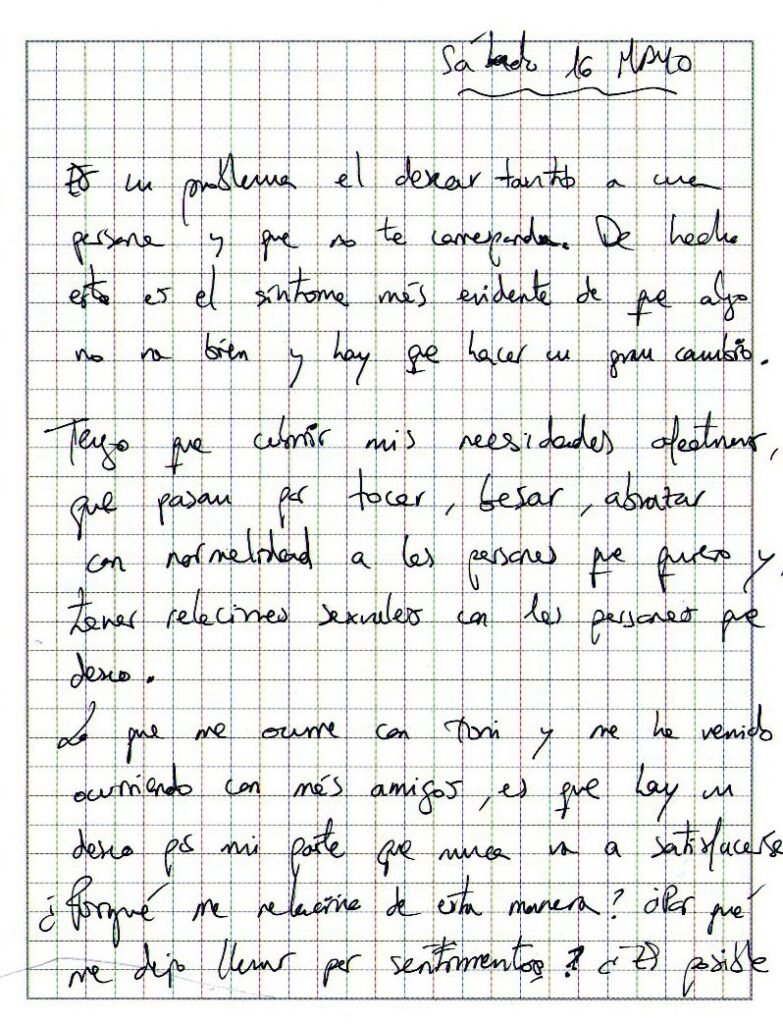 Sábado 16 MAYO
Es un problema el desear tanto a una
persona y que no te corresponda. De hecho
este es el síntoma más evidente de que algo
no va bien y hay que hacer un gran cambio.
Tengo que cubrir mis necesidades afectivas,
que pasan por tocar, besar, abrazar
con normalidad a las personas que quiero y,
tener relaciones sexuales con las personas que
deseo.
Lo que me ocurre con Toni y me ha venido
ocurriendo con más amigos, es que hay un
deseo por mi parte que nunca va a satisfacerse
¿Porqué me relaciono de esta manera? ¿Por qué
me dejo llevar por sentimientos? ¿Es posible